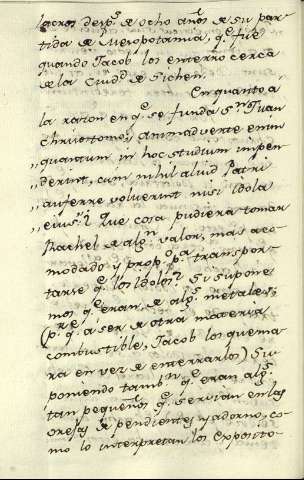 lacros desp.s de ocho años de su par-
tida de Mesopotamia, q.e fue
quando Jacob los enterro cerca
de la Ciud.d de Sichen.
En quanto a
la razon en q.e se funda S.n Juan
Chrisostomo; animadverte enim
„ quantum in hoc studium impen
„ derint, cum nihil aliud Patri
„ auferre voluerint nisi Idola
„ eius: Que cosa pudiera tomar
Rachel de alg.n valor, mas aco-
modado y prop.o p.a transpor-
tarse q.e los Idolos? Si supone
mos q.e eran de alg.s metales,
(p.r q.e a ser de otra materia
combustible, Jacob los quema
ra en vez de enterrarlos) Su
poniendo tamb.n q.e eran alg.s
tan pequeños q.e servian en las
orejas de pendientes y adorno, co-
mo lo interpretan los Exposito-